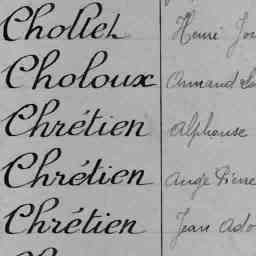 Chollet Henri
Choloux Armand
Chrétien Alphonse
Chrétien Ange Pierre
Chrétien Jean